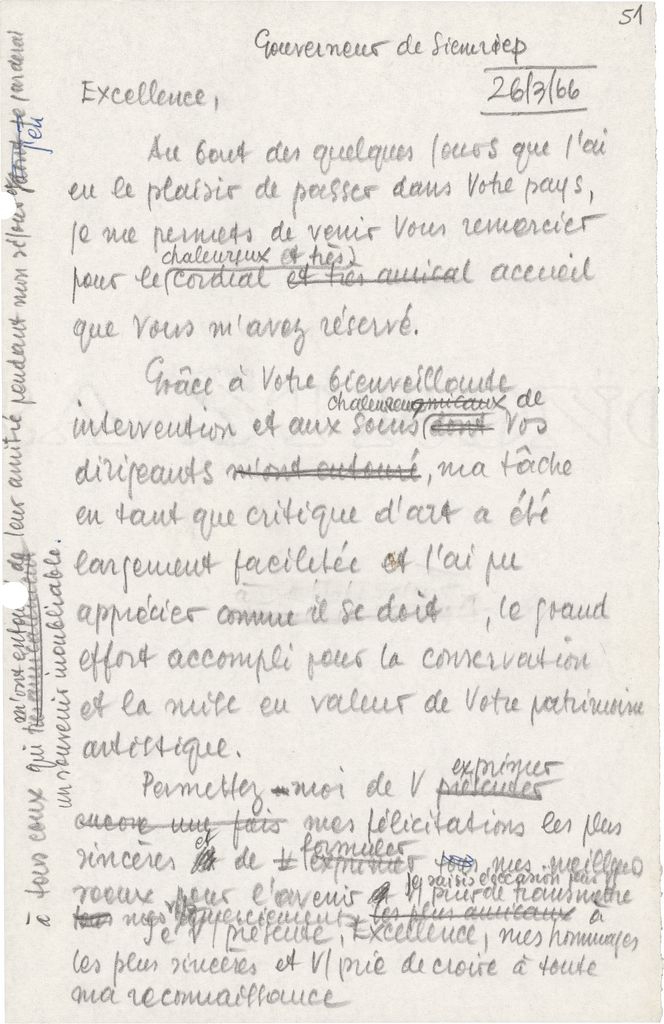 51
Gouverneur de Siemréep
26/3/66
Excellence,
Au bout des quelques jours que j'ai
eu le plaisir de passer dans Votre pays,
je me permets de venir Vous remercier
chaleureux et très
pour le cordial et très amical accueil
que Vous m'avez réservé.
Grâce à Votre bienveillante
chaleureux amicaux de
intervention et aux soins dont Vos
dirigeants m'ont entouré, ma tâche
en tant que critique d'art a été
largement facilitée et j'ai pu
apprécier comme il se doit, le grand
effort accompli pour la conservation
et la mise en valeur de Votre patrimoine
artistique.
exprimer
Permettez-moi de V présenter
encore une fois mes félicitations les plus
formuler
sincères et de exprimer mes meilleurs
je saisis l'occasion pour
voeux pour l'avenir et V/ prier de transmettre
mes remerciements les plus amicaux à
Je V/ présente, Excellence, mes hommages
les plus sincères et V/ prie de croire à toute
ma reconnaissance
à tous ceux qui m'ont entouré de leur amitié pendant mon séjour et dont je garderai
j'en
un souvenir inoubliable.